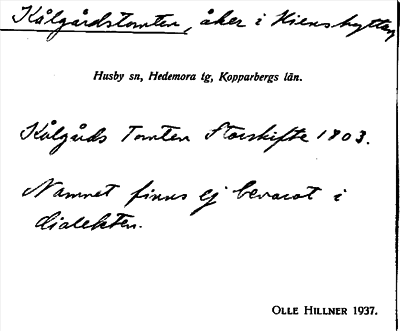 Kålgårdstomten, åker i Kienshyttan
Husby sn, Hedemora tg, Kopparbergs län.
Kålgårds Tomten Storskifte 1803.
Namnet finns ej bevarat i
dialekten.
OLLE HILLNER 1937.